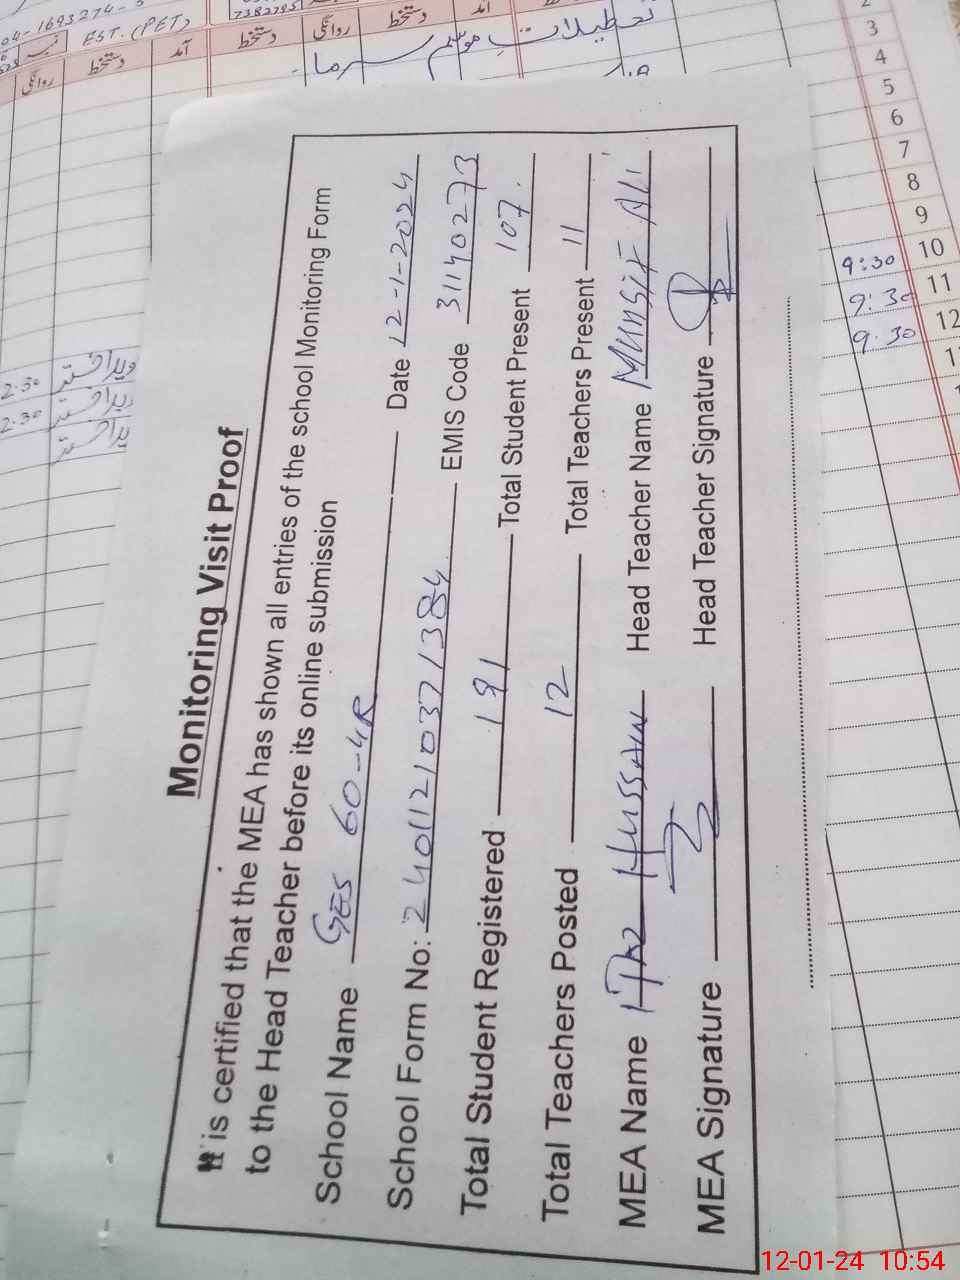 04-1693274-5
7382795
EST. (PET)
آمد
دستخط
روانگی
تعطیلات موسم سرما
Monitoring Visit Proof
It is certified that the MEA has shown all entries of the school Monitoring Form
to the Head Teacher before its online submission
School Name GES 60-4R Date 12-1-2024
School Form No: 24011210371384 EMIS Code 31140273
Total Student Registered 191 Total Student Present 107.
Total Teachers Posted 12 Total Teachers Present 11
MEA Name IJAZ HUSSAIN Head Teacher Name MUNSIF ALI
MEA Signature Head Teacher Signature
2
3
4
5
6
7
8
9
10 9:30
11 9:30
12 9.30
2.30
2.30
12-01-24 10:54